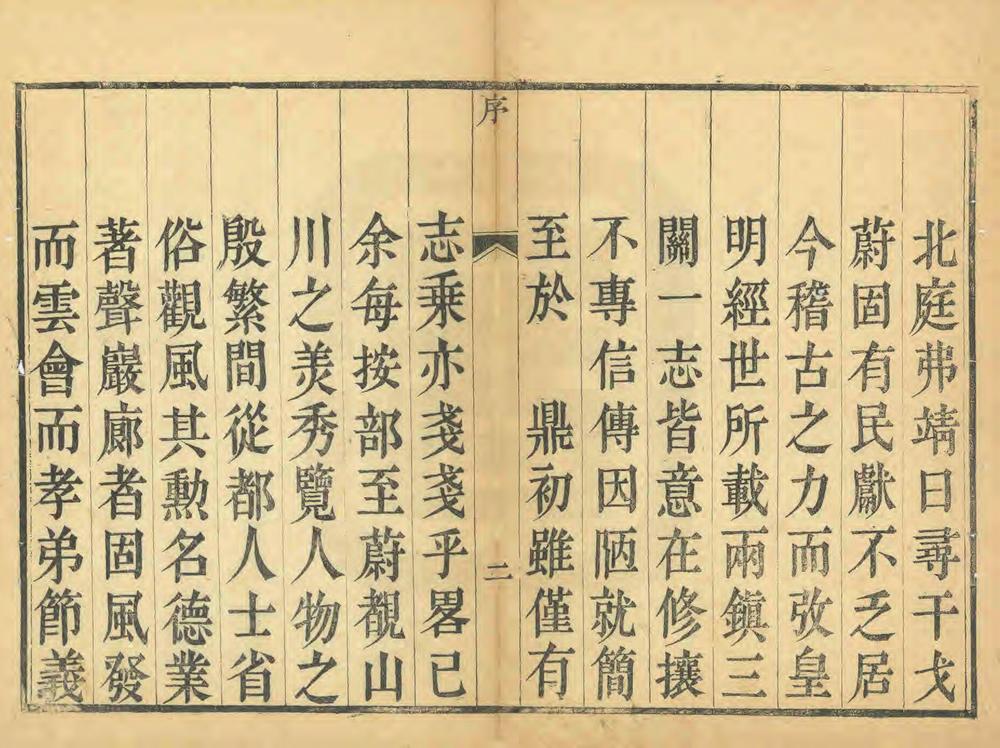 北庭弗靖日尋干戈
蔚固有民獻不乏居
今稽古之力而攷皇
明經世所載兩鎮三
關一志皆意在修攘
不專信傳因陋就簡
至於　鼎初雖僅有
序
二
志乘亦戔戔乎畧已
余每按部至蔚覩山
川之羡秀覽人物之
殷繁間從都人士省
俗觀風其勳名德業
著聲巖廊者固風發
而雲會而孝弟節義